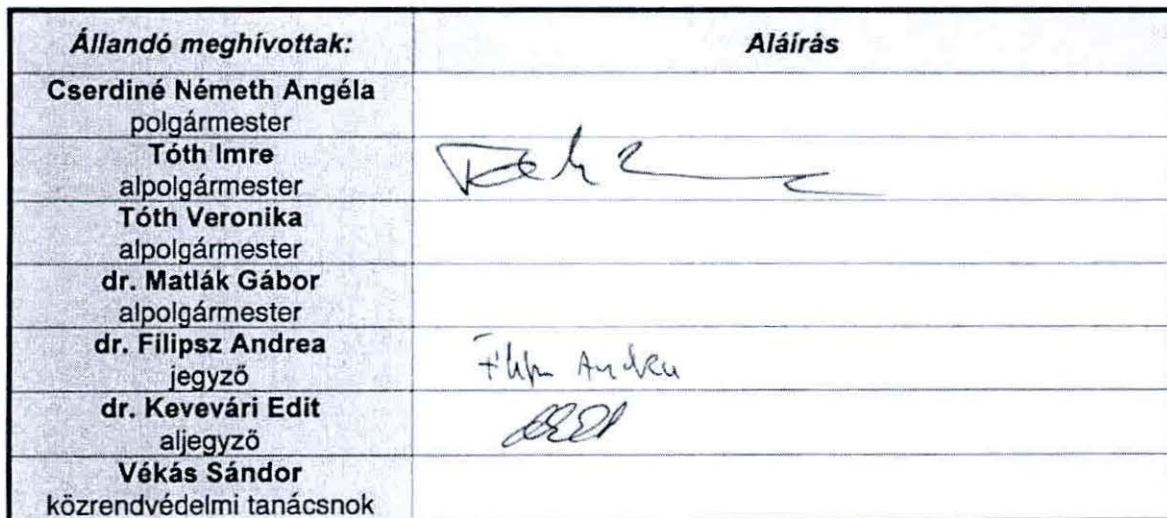 Állandó meghívottak: Aláírás
Cserdiné Németh Angéla
polgármester
Tóth Imre
alpolgármester
Tóth Veronika
alpolgármester
dr. Matlák Gábor
alpolgármester
dr. Filipsz Andrea
jegyző
Andrea
dr. Kevevári Edit
aljegyző
Vékás Sándor
közrendvédelmi tanácsnok